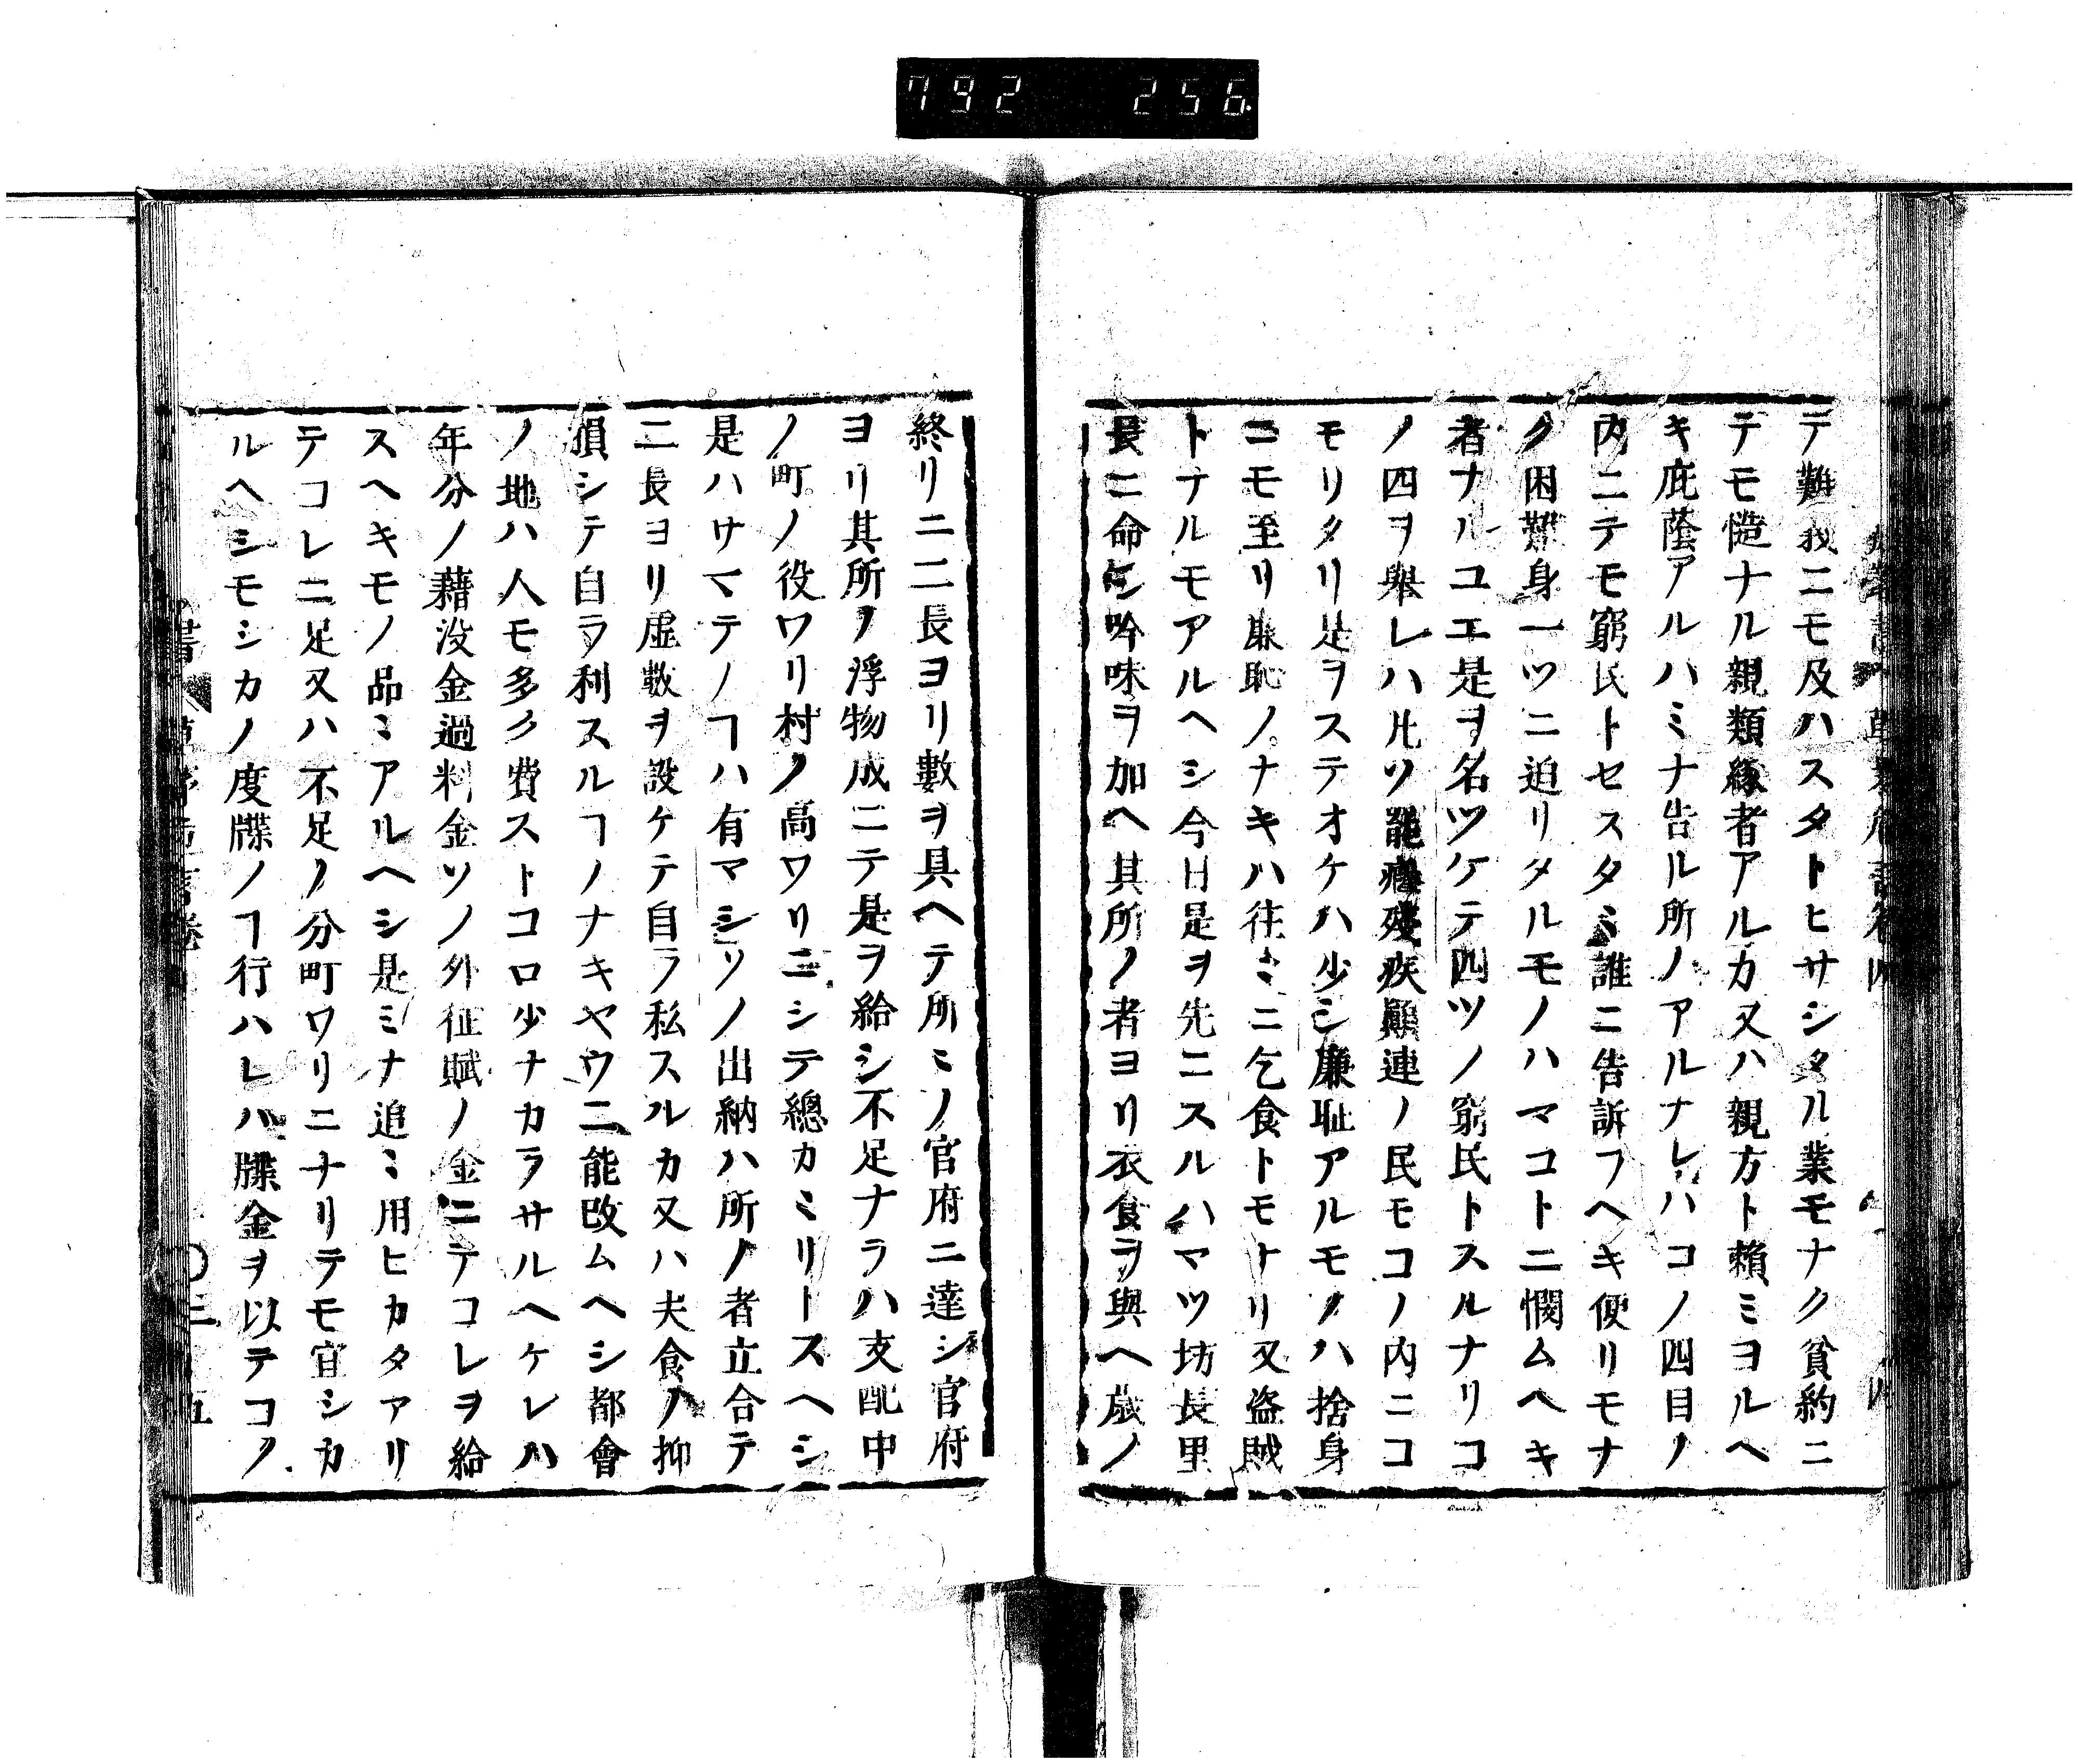 792 256
テ難義ニモ及ハスタトヒサシタル業モナク貧約ニ
テモ慥ナル親類縁者アルカ又ハ親方ト頼ミヨルヘ
キ庇蔭アルハミナ告ル所ノアルナレハコノ四目ノ
内ニテモ窮民トセスタヾ誰ニ告訴フヘキ便リモナ
ク困難身一ツニ迫リタルモノハマコトニ憫ムヘキ
者ナルユエ是ヲ名ツケテ四ツノ窮民トスルナリコ
ノ四ヲ舉レハ凡ソ罷癃殘疾顚連ノ民モコノ内ニコ
モリタリ是ヲステオケハ少シ廉耻アルモノハ捨身
ニモ至リ廉恥ノナキハ往〻ニ乞食トモナリ又盗賊
トナルモアルヘシ今日是ヲ先ニスルハマツ坊長里
長ニ命シ吟味ヲ加ヘ其所ノ者ヨリ衣食ヲ與ヘ歳ノ
終リニ二長ヨリ數ヲ具ヘテ所〻ノ官府ニ達シ官府
ヨリ其所ノ浮物成ニテ是ヲ給シ不足ナラハ支配中
ノ町ノ役ワリ村ノ高ワリニシテ總カヽリトスヘシ
是ハサマテノヿハ有マシソノ出納ハ所ノ者立合テ
二長ヨリ虚數ヲ設ケテ自ラ私スルカ又ハ夫食ノ抑
損シテ自ラ利スルヿノナキヤウニ能改ムヘシ都會
ノ地ハ人モ多ク費ストコロ少ナカラサルヘケレハ
年分ノ藉没金過料金ソノ外征賦ノ金ニテコレヲ給
スヘキモノ品〻アルヘシ是ミナ追〻用ヒカタアリ
テコレニ足又ハ不足ノ分町ワリニナリテモ宜シカ
ルヘシモシカノ度牒ノヿ行ハレハ牒金ヲ以テコノ